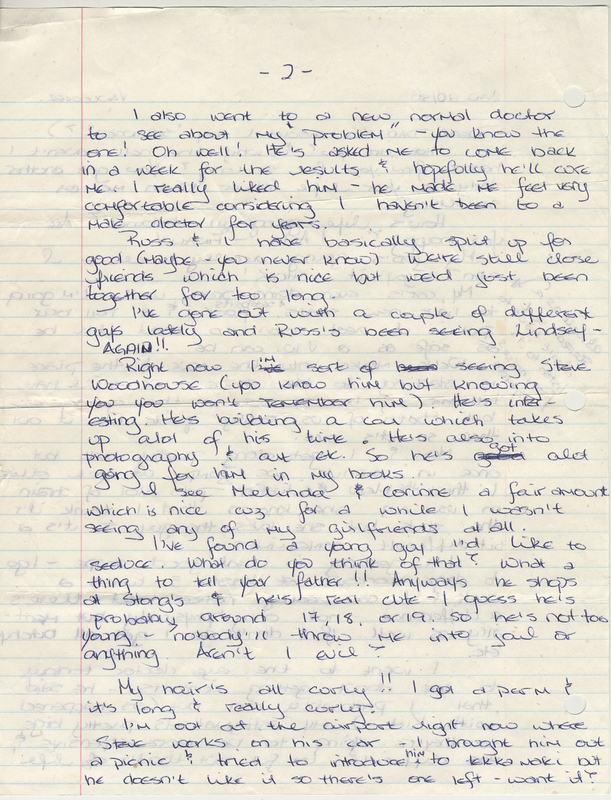 - 2 -
I also went to a new, normal doctor
to see about my "problem" - you know the
one! Oh well! He's asked me to come back
in a week for the results & hopefully he'll cure
me. I really liked him - he made me feel very
comfortable considering I haven't been to a
male doctor for years.
Russ & I have basically split up for
good (maybe - you never know) We're still close
friends which is nice but we'd just been
together for too long.
I've gone out with a couple of different
guys lately and Russ's been seeing Lindsey -
AGAIN!!
Right now I'm sort of seeing Steve
Woodhouse (you know him but knowing
you you won't remember him). He's inter-
esting. He's building a car which takes
up alot of his time. He's also into
photography & art etc. So he's got alot
going for him in my books.
I see Melinda & Corinne a fair amount
which is nice cuz for a while I wasn't
seeing any of my girlfriends at all.
I've found a young guy I'd like to
seduce. What do you think of that? What a
thing to tell your father!! Anyways he shops
at Stong's & he's real cute - I guess he's
probably around 17, 18, or 19. so he's not too
young - nobody'll throw me into jail or
anything. Aren't I evil?
My hair's all curly!! I got a perm &
it's long & really curly!
I'm out at the airport right now where
Steve works on his car - I brought him out
a picnic & tried to introduce him to tekka maki but
he doesn't like it so there's one left - want it?